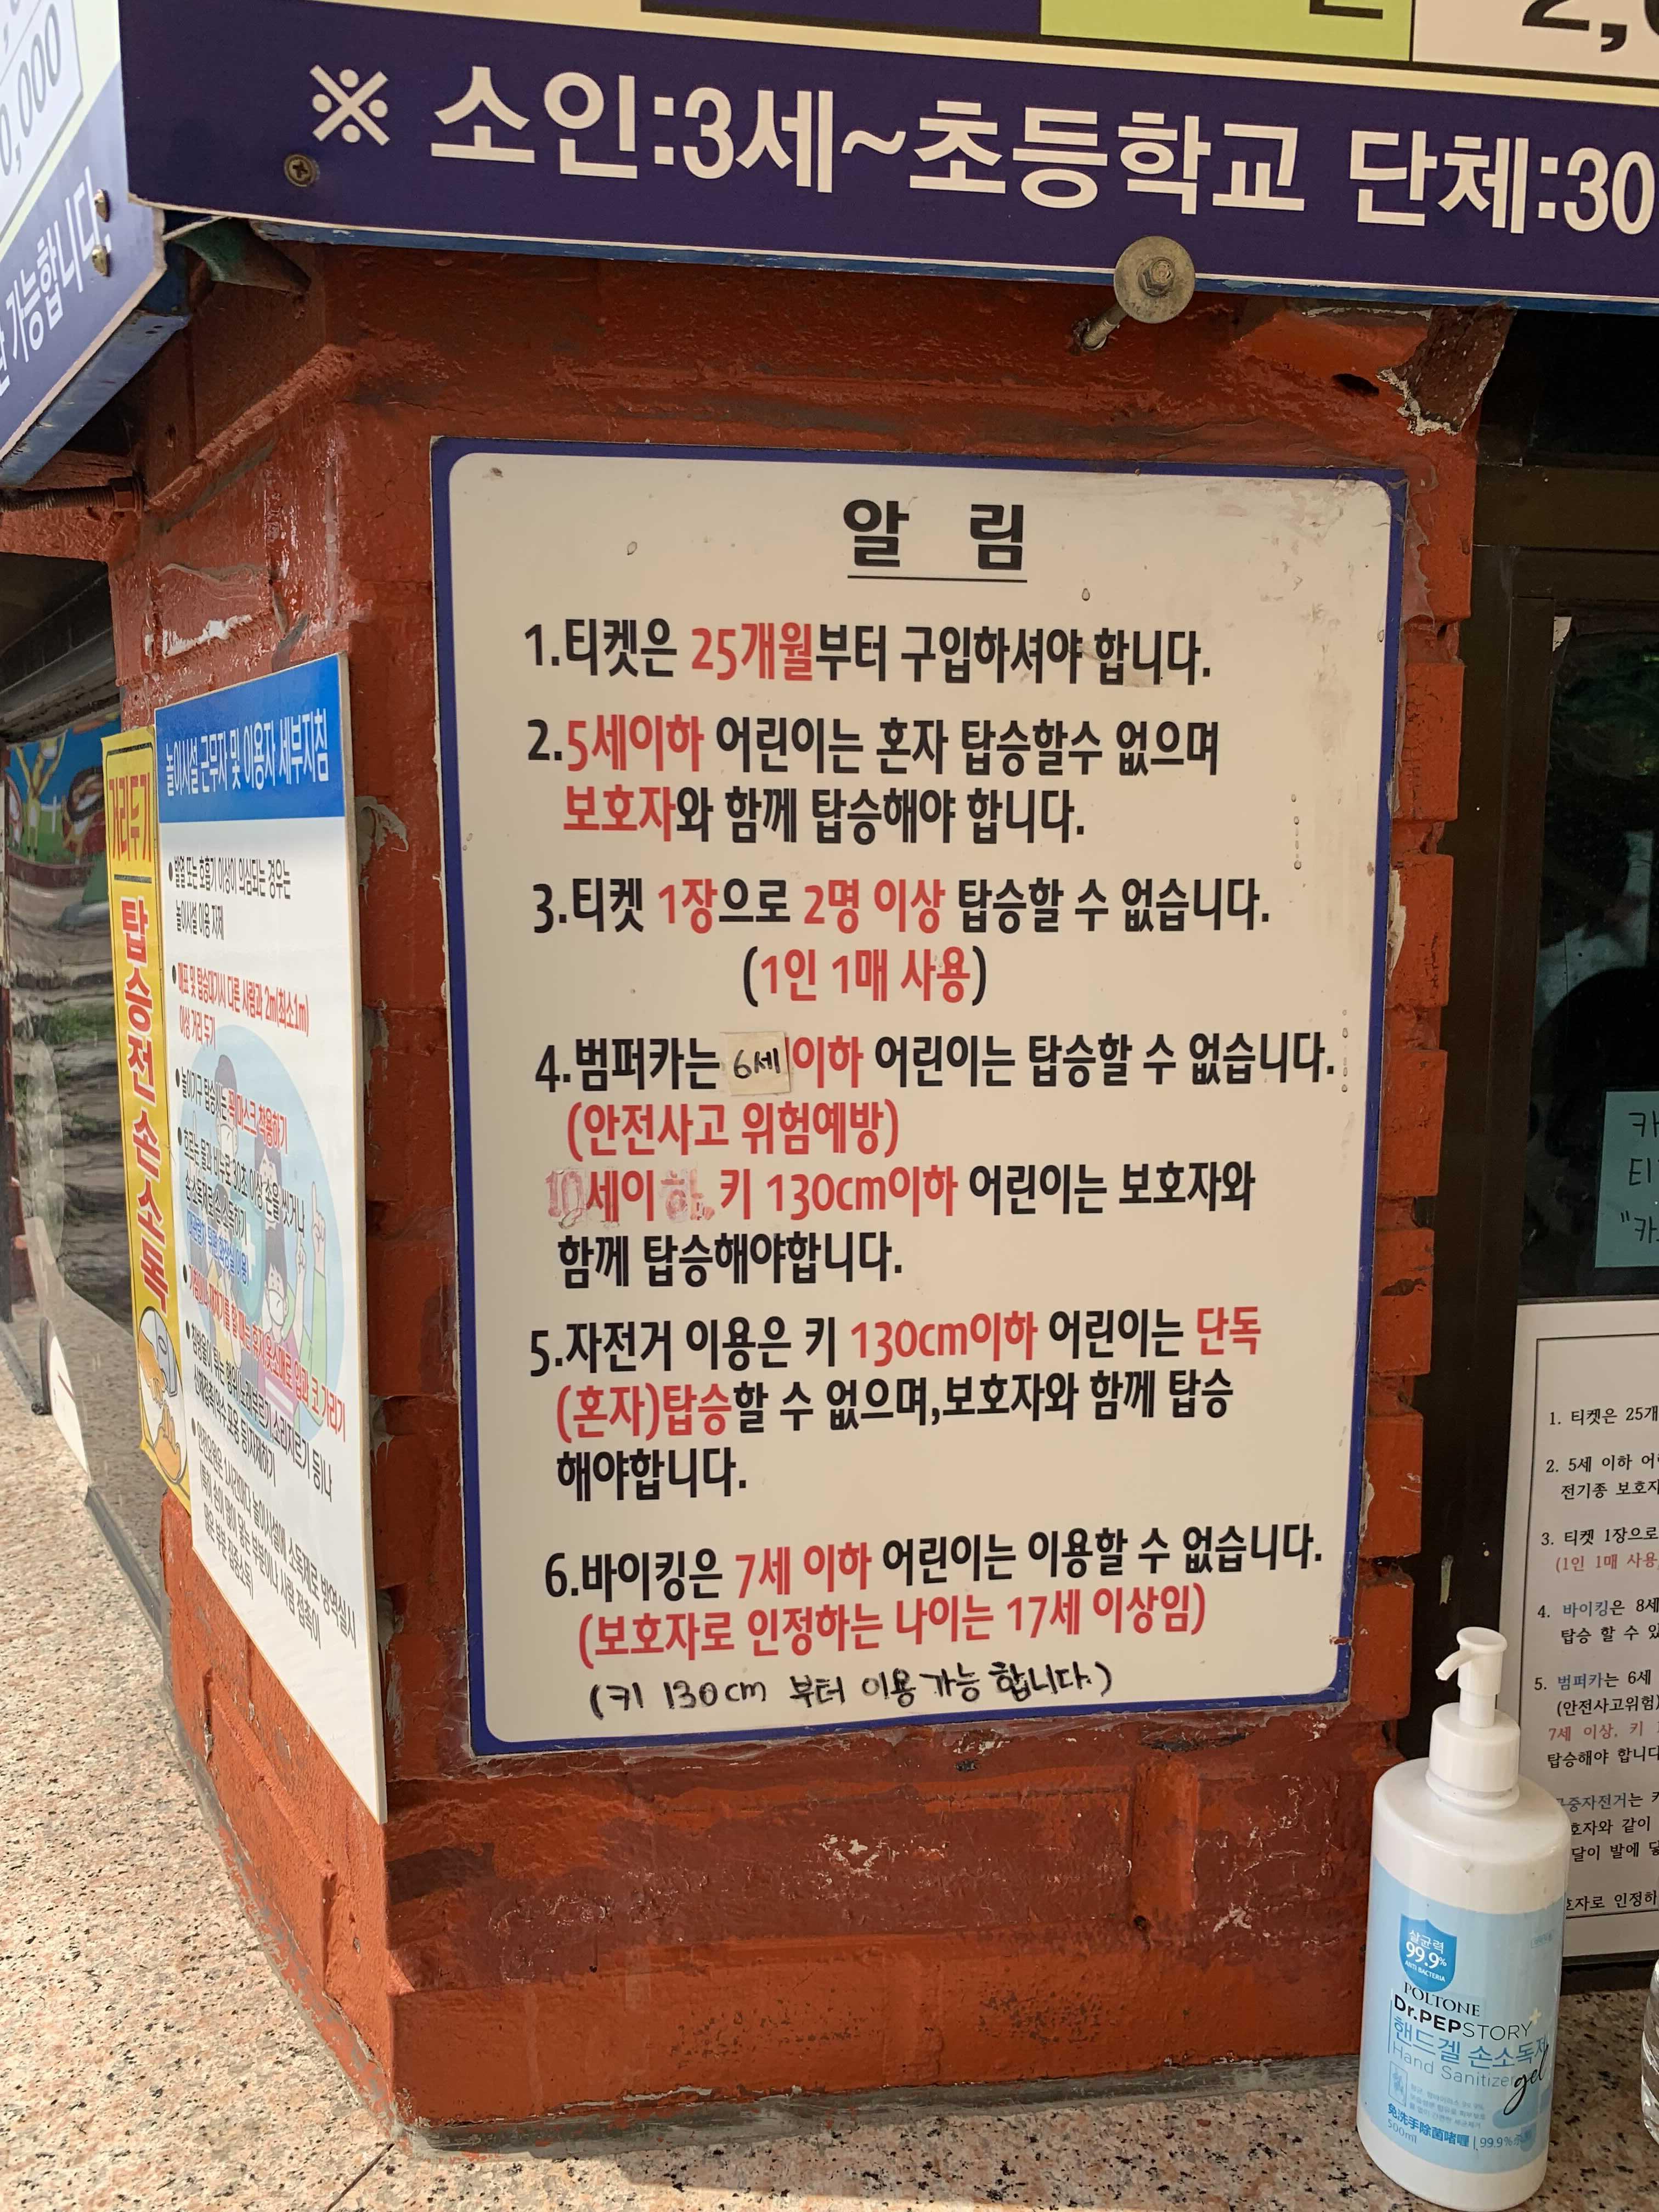 0,000
가능합니다.
2,
※ 소인:3세~초등학교 단체:30
알 림
1.티켓은 25개월부터 구입하셔야 합니다.
2.5세이하 어린이는 혼자 탑승할수 없으며
보호자와 함께 탑승해야 합니다.
3.티켓 1장으로 2명 이상 탑승할 수 없습니다.
(1인 1매 사용)
4.범퍼카는 6세 이하 어린이는 탑승할 수 없습니다.
(안전사고 위험예방)
10세이하, 키 130cm이하 어린이는 보호자와
함께 탑승해야합니다.
5.자전거 이용은 키 130cm이하 어린이는 단독
(혼자)탑승할 수 없으며,보호자와 함께 탑승
해야합니다.
6.바이킹은 7세 이하 어린이는 이용할 수 없습니다.
(보호자로 인정하는 나이는 17세 이상임)
(키 130cm 부터 이용 가능 합니다.)
거리두기
탑승전 손소독
놀이시설 근무자 및 이용자 세부지침
• 발열 또는 호흡기 이상이 의심되는 경우는
놀이시설 이용 자제
• 매표 및 탑승대기시 다른 사람과 2m(최소1m)
이상 거리 두기
• 놀이기구 탑승시는 꼭 마스크 착용하기
• 흐르는 물과 비누로 30초 이상 손을 씻거나
손소독제로 손소독하기
카
티
"카
1. 티켓은 25개
2. 5세 이하 어
전기종 보호자
3. 티켓 1장으로
(1인 1매 사용
4. 바이킹은 8세
탑승 할 수 있
5. 범퍼카는 6세
(안전사고위험)
7세 이상, 키
탑승해야 합니다
중자전거는
호자와 같이
달이 발에
호자로 인정하
살균력
99.9%
ANTI BACTERIA
POLTONE
Dr.PEPSTORY+
핸드겔 손소독제
Hand Sanitizer gel
500ml
99.9%